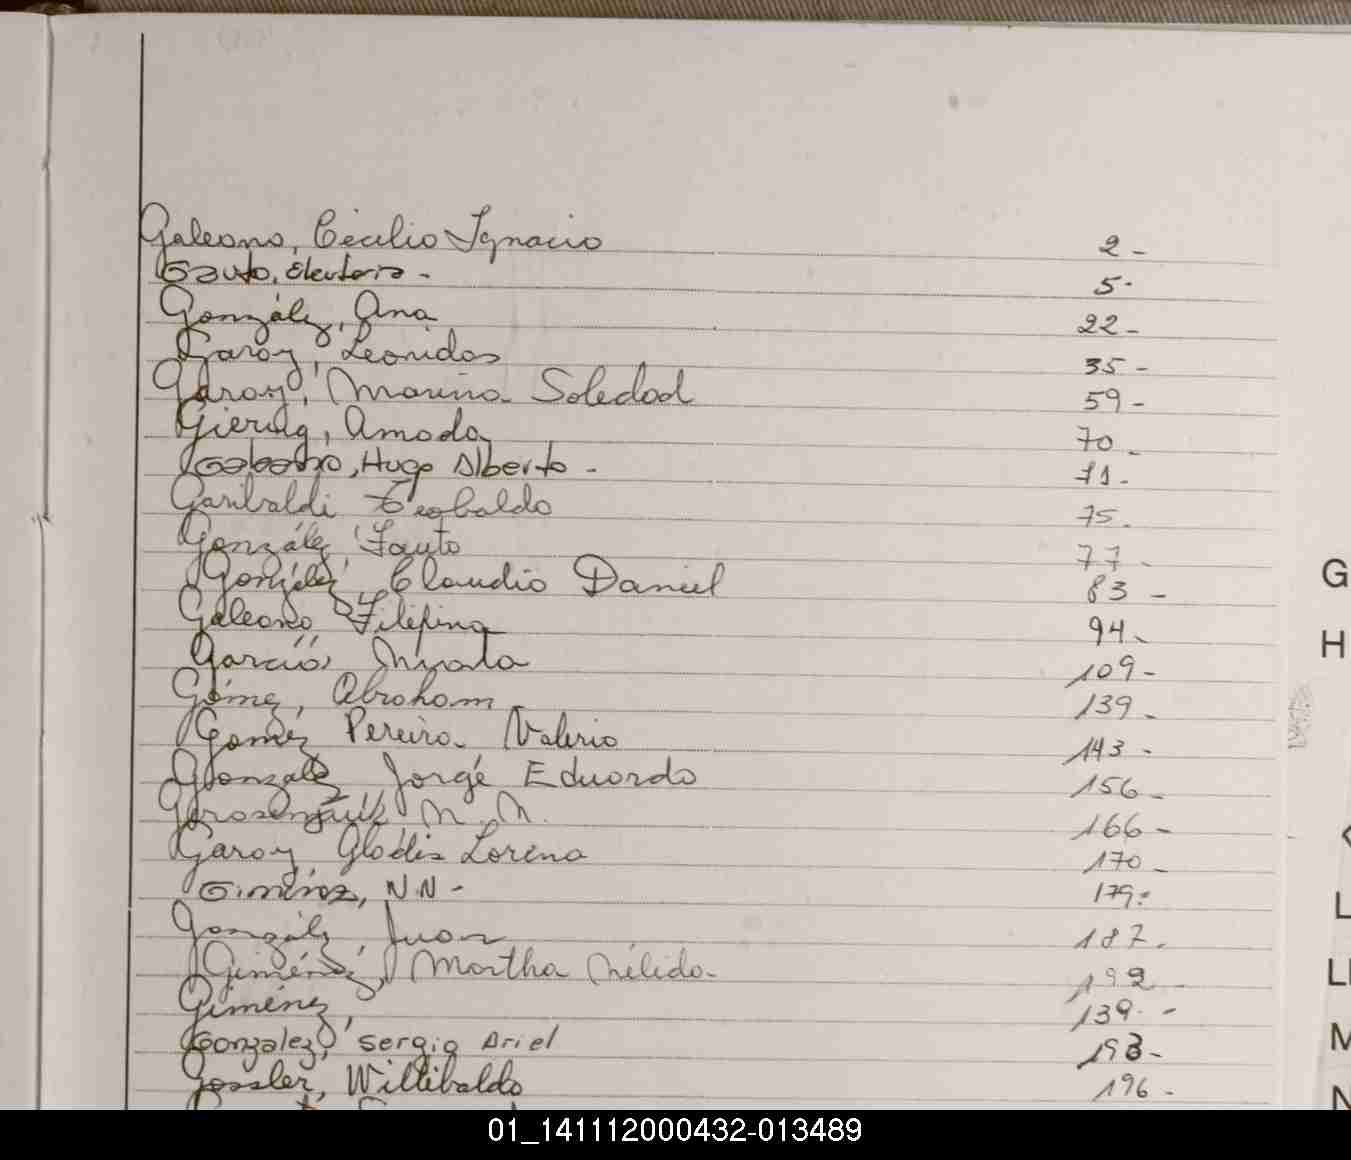 Galeano, Cecilio Ignacio 2-
Gauto, Eleuterio - 5-
González, Ana 22-
Garay, Leonidas 35-
Garay, Marina Soledad 59-
Giering, Amada 70-
Hugo Alberto - 71-
Garibaldi Teobaldo 75-
González, Fauto 77-
González, Claudio Daniel 83-
Galeano Filefina 94-
García, 109-
Gómez, Abraham 139-
Gomez Pereira Valerio 143-
Gonzalez Jorge Eduardo 156-
N. N. 166-
Garay Gladis Lorena 170-
Giménez, N.N- 179-
González, Juan 187-
Giménez, Martha Nélida 192-
Giménez, 139-
Gonzalez, Sergio Ariel 193-
Gossler, Willibaldo 196-
G
H
L
M
N
01_141112000432-013489